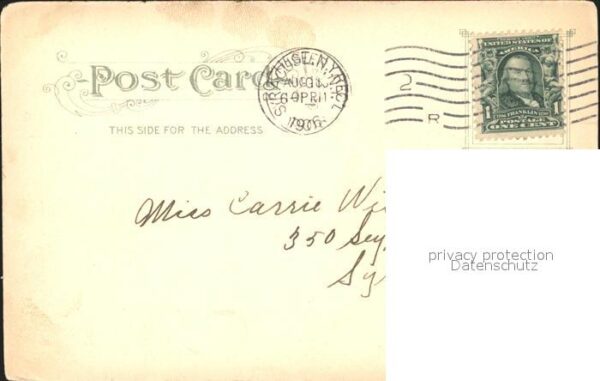 Post Card
THIS SIDE FOR THE ADDRESS
SYRACUSE, N.Y. REC'D
AUG
6 PM
1906
2
R
UNITED STATES OF
AMERICA
1
1
FRANKLIN
POSTAGE
ONE CENT
Miss Carrie Wi
350 Sey
Sy
privacy protection
Datenschutz